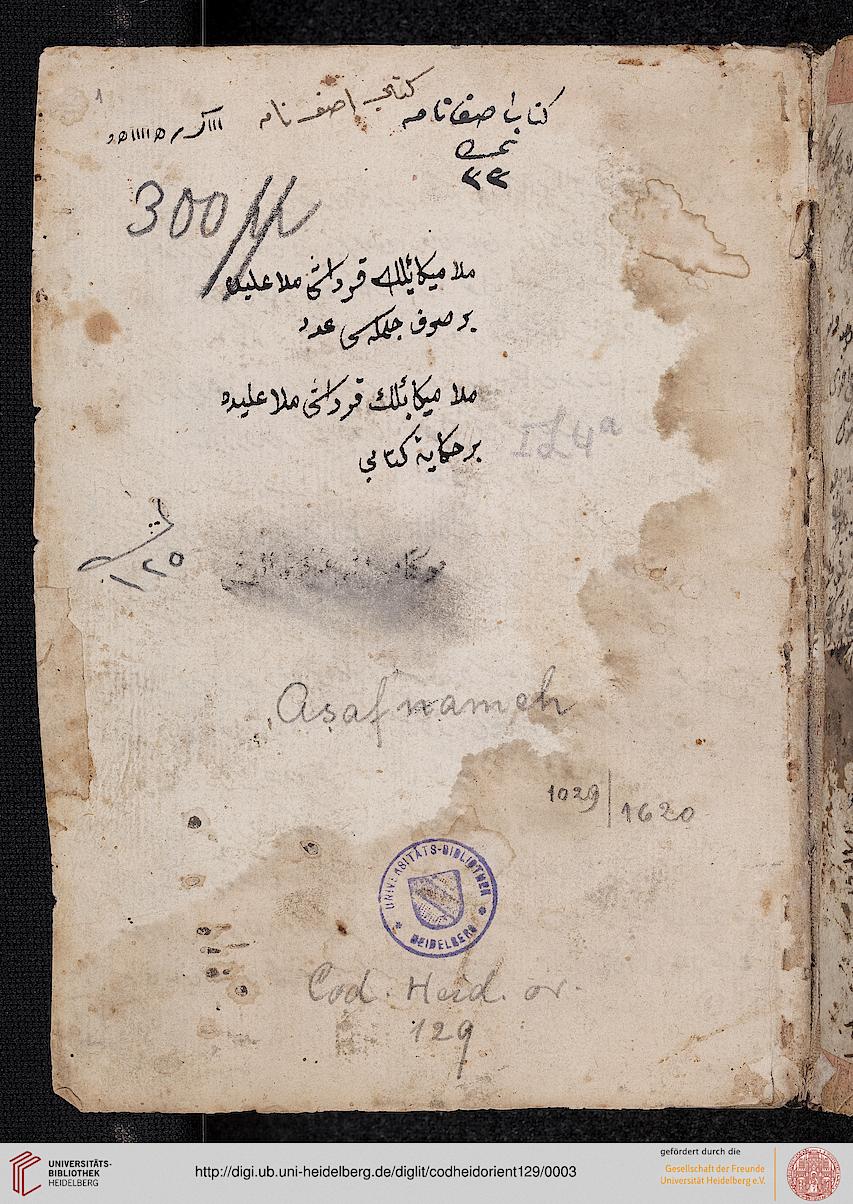 1
كتاب اصفنامه
كتاب اصفنامه
٣٣
300
ملا ميكائيلك قرداشى ملا عليده
بر صوف جلمه سى عدد
ملا ميكائيلك قرداشى ملا عليده
بر حكاية كتابى
I L 4a
١٢٥
Asafnameh
1029 | 1620
UNIVERSITÄTS-BIBLIOTHEK
* HEIDELBERG *
Cod. Heid. or.
129
UNIVERSITÄTS-
BIBLIOTHEK
HEIDELBERG
http://digi.ub.uni-heidelberg.de/diglit/codheidorient129/0003
gefördert durch die
Gesellschaft der Freunde
Universität Heidelberg e.V.